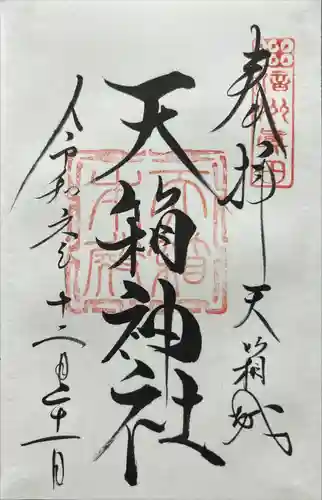 奉拝 天箱城
天箱神社
令和六年十二月二十一日